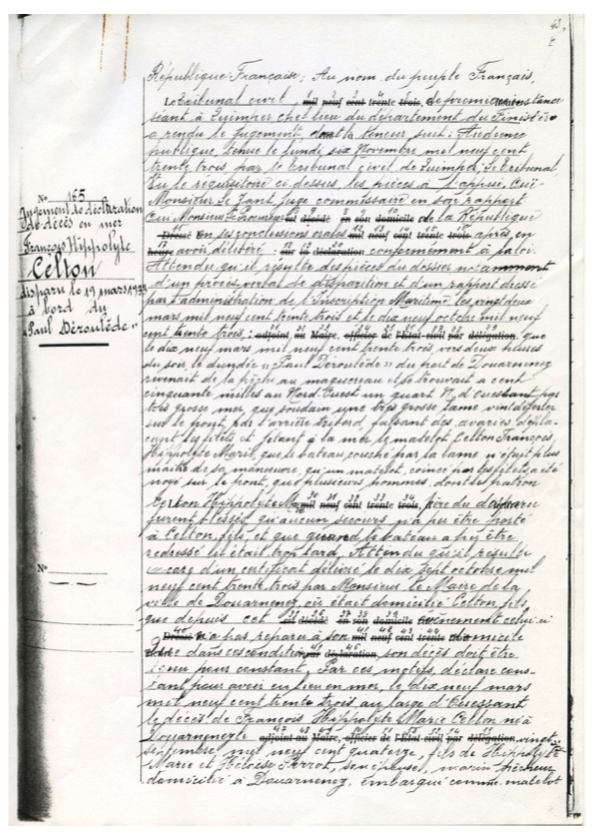 43,
N° 165
Jugement de déclaration
de décès en mer
François Hippolyte
Celton
disparu le 19 mars 1933
à bord du
"Paul Déroulède"
N°
République Française; Au nom du peuple Français,
Le tribunal civil, mil neuf cent trente trois, de première instance
séant à Quimper chef lieu du département du Finistère
a rendu le jugement, dont la teneur suit: Audience
publique, tenue le lundi six Novembre mil neuf cent
trente trois par le tribunal civil de Quimper, Le tribunal,
Vu le réquisitoire ci-dessus, les pièces à l'appui, Ouï
Monsieur Le Jant, juge commissaire en son rapport
Ouï Monsieur le Procureur est décédé en son domicile de la République
Dressé en ses conclusions orales mil neuf cent trente trois après en
heure avoir délibéré sur la déclaration conformément à la loi.
Attendu qu'il résulte des pièces du dossier notamment
d'un procès verbal de disparition et d'un rapport dressé
par l'administration de l'Inscription Maritime les vingt deux
mars mil neuf cent trente trois et le dix neuf octobre mil neuf
cent trente trois, adjoint au Maire, officier de l'État-civil par délégation, que
le dix neuf mars mil neuf cent trente trois, vers deux heures
du soir, le dundée "Paul Déroulède" du port de Douarnenez
revenait de la pêche au maquereau et se trouvait à cent
cinquante milles au Nord-Ouest un quart N, d'Ouessant, par
très grosse mer, que soudain une très grosse lame vint déferler
sur le pont, par l'arrière tribord, faisant des avaries, déplaçant
les filets et jetant à la mer le matelot Celton François,
Hippolyte Marie, que le bateau, couché par la lame n'était plus
maître de sa manœuvre, qu'un matelot, coincé par les filets, a été
noyé sur le pont, que plusieurs hommes, dont le patron
Celton Hippolyte Marie mil neuf cent trente trois, père du disparu
furent blessés, qu'aucun secours n'a pu être porté
à Celton fils, et que quand le bateau a pu être
redressé il était trop tard, Attendu qu'il résulte
encore d'un certificat délivré le dix sept octobre mil
neuf cent trente trois par Monsieur le Maire de la
ville de Douarnenez, où était domicilié Celton fils,
que depuis cet est décédé en son domicile évènement celui-ci
Dressé n'a pas reparu à son mil neuf cent trente domicile
que dans ces conditions sur déclaration, son décès doit être
tenu pour constant, Par ces motifs, déclare constant
pour avoir eu lieu en mer, le dix neuf mars
mil neuf cent trente trois au large d'Ouessant
le décès de François Hippolyte Marie Celton né à
Douarnenez le adjoint au Maire, officier de l'État-civil par délégation, vingt
septembre mil neuf cent quatorze, fils de Hippolyte
Marie et Héloïse Perrot, son épouse, marin pêcheur
domicilié à Douarnenez, embarqué comme matelot